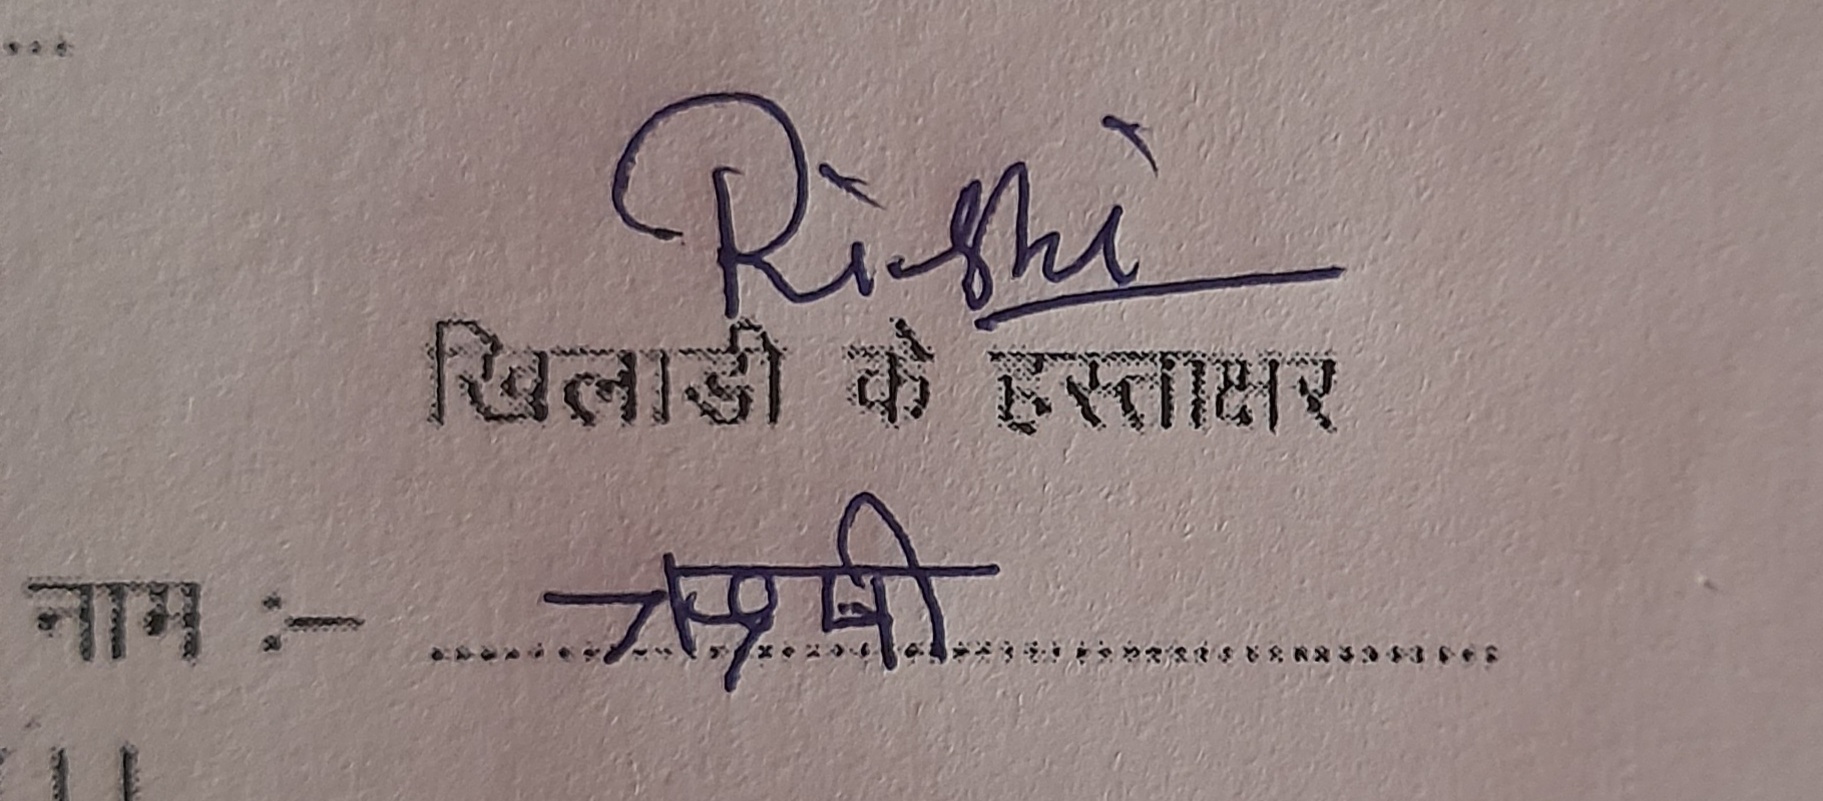 Rishi
खिलाडी के हस्ताक्षर
नाम :- ऋषी